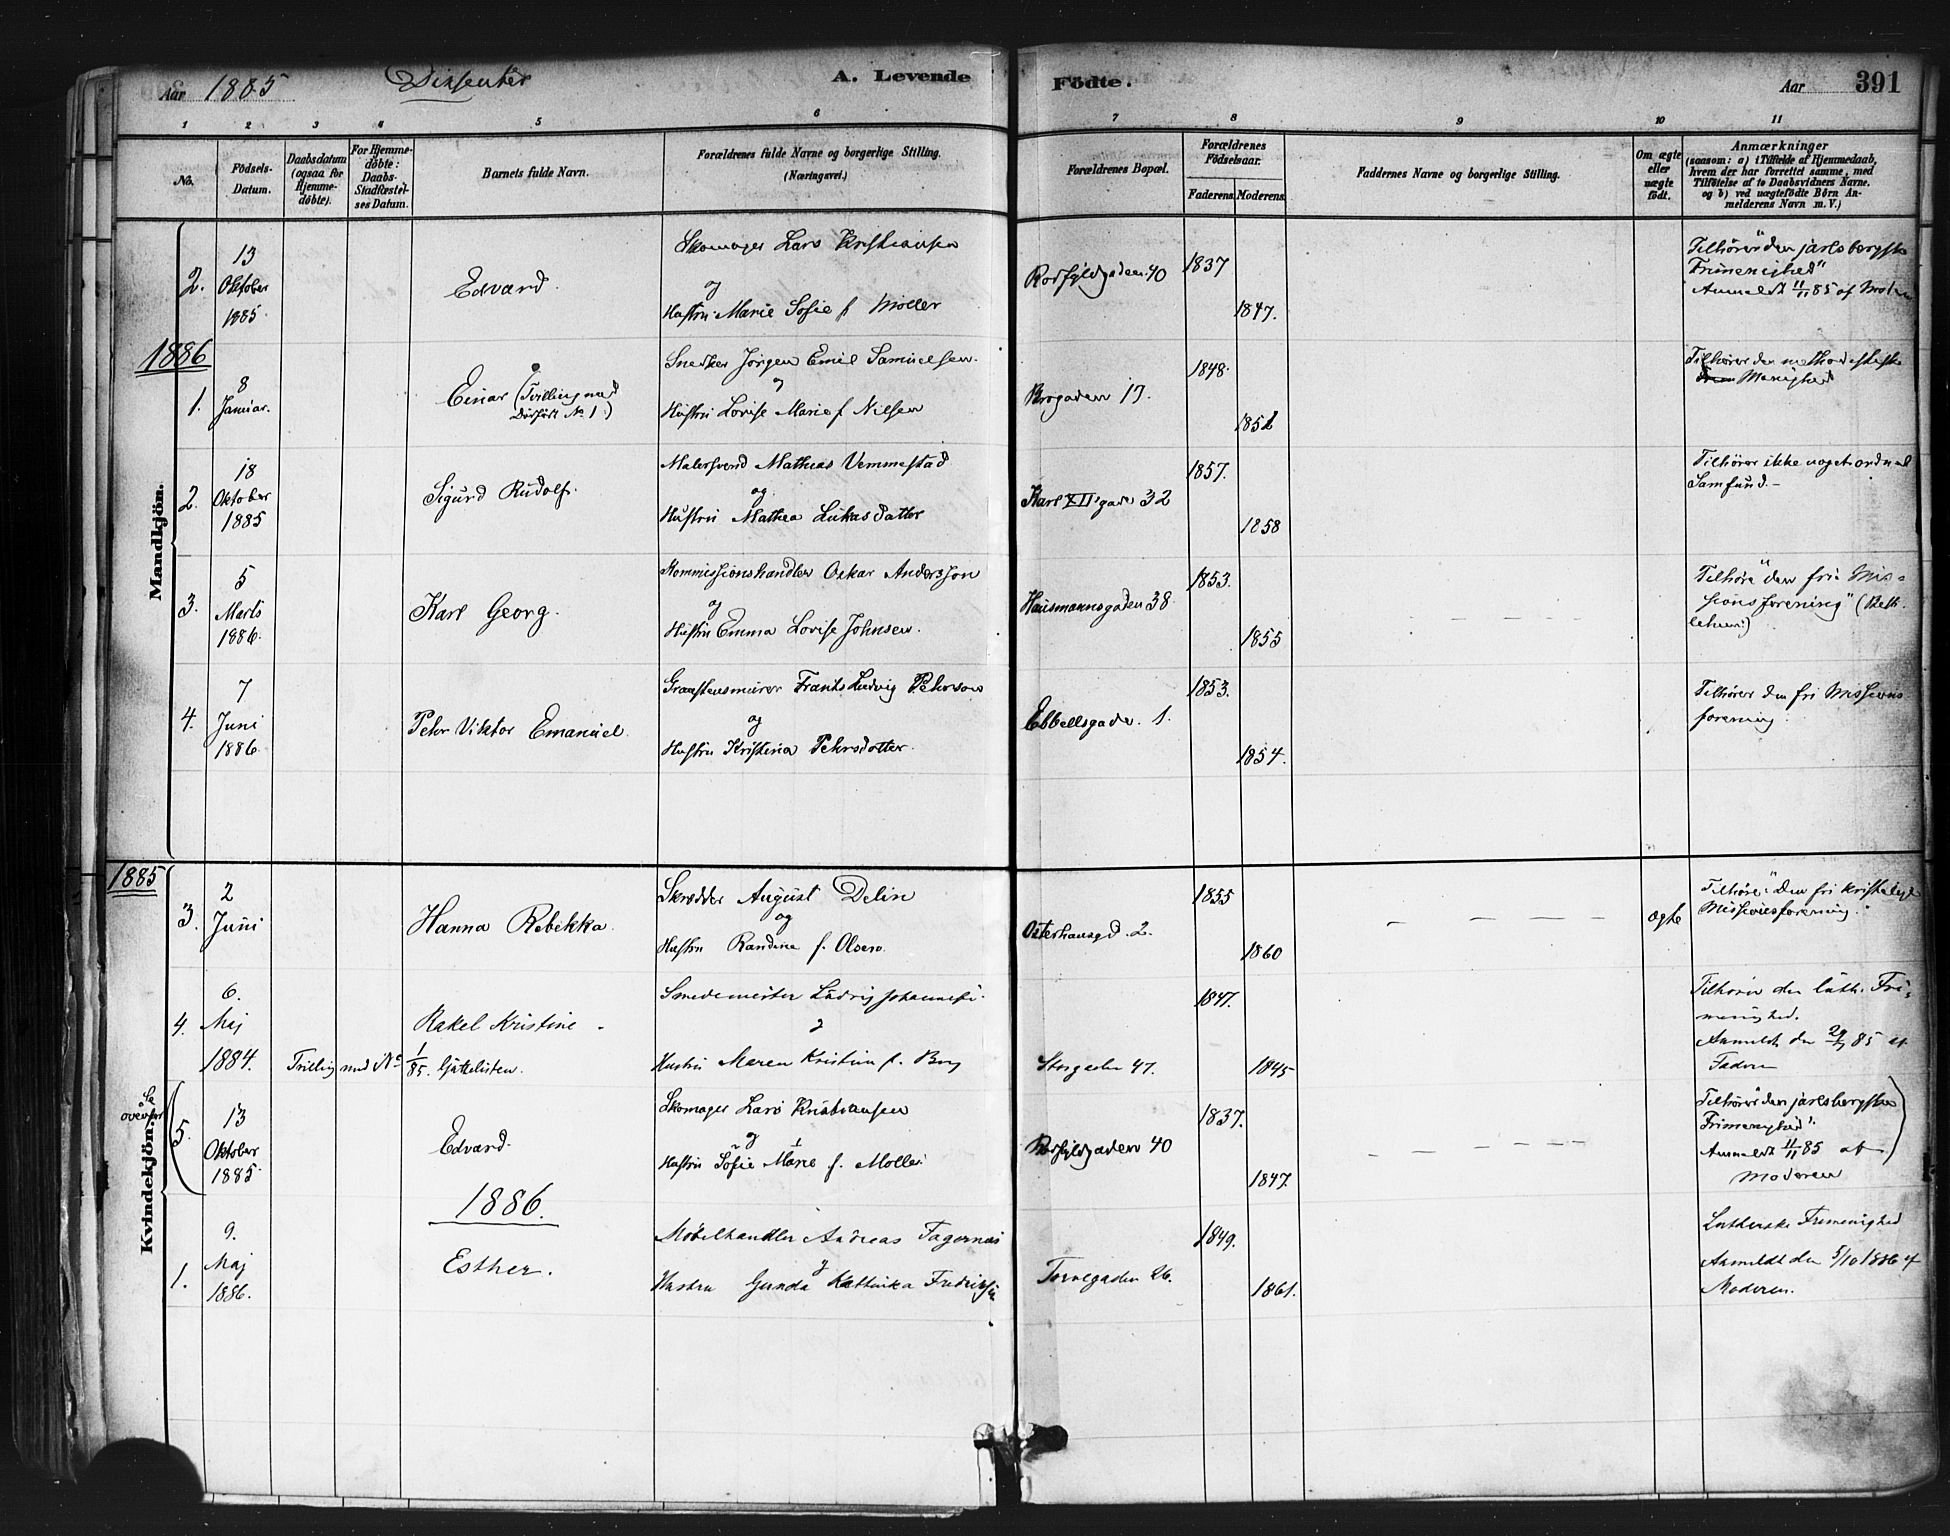 Aar 1885 Dissenter A. Levende Födte. Aar 391
1 2 3 4 5 6 7 8 9 10 11
No.
Födsels-Datum.
Daabsdatum (ogsaa for Hjemme-döbte).
For Hjemme-döbte: Daabs-Stadfæstel-ses Datum.
Barnets fulde Navn.
Forældrenes fulde Navne og borgerlige Stilling.
(Næringsvei.)
Forældrenes Bopæl.
Forældrenes Födselsaar.
Faderens. Moderens.
Faddernes Navne og borgerlige Stilling.
Om ægte eller uægte födt.
Anmærkninger
(saasom: a) i Tilfælde af Hjemmedaab,
hvem der har forrettet samme, med
Tilföielse af to Daabsvidners Navne,
og b) ved uægtefödte Börn An-
melderens Navn m. V.)
Mandkjön.
2. 13 Oktober 1885
Edvard
Skomager Lars Kristiansen
og
Hustru Marie Sofie f Møller
Rosfyldgaden 40
1837
1847.
Tilhører "den jarlsbergske
Frimenighed"
Anmeldt 11/11 85 af
1886
1. 8 Januar.
Einar (Tvilling med
Dødfødt No 1.)
Snedker Jørgen Emil Samuelsen.
og
Hustru Lovise Marie f Nielsen
Brogaden 17.
1848.
1852
Tilhører den methodistiske
Menighed
2. 18 Oktober 1885
Sigurd Rudolf.
Malersvend Mathias Vemmestad
og
Hustru Mathea Lukasdatter
Karl XII's gade 32
1857.
1858
Tilhører ikke noget ordnet
Samfund.-
3. 5 Marts 1886.
Karl Georg.
Kommissionshandler Oskar Andersson
og
Hustru Emma Lovise Johnsen.
Hausmannsgaden 38
1853.
1855
Tilhøre "den fri Mis-
sionsforening" (Beth-
lehem)
4. 7 Juni 1886
Pehr Viktor Emanuel.
Graastensmurer Frants Ludvig Pehrson
og
Hustru Kristina Pehrsdotter.
Ebbellsgade. 1.
1853.
1854.
Tilhører den fri Missions
forening.
1885
Kvindekjön.
3. 2 Juni
Hanna Rebekka.
Skrædder August Delin
og
Hustru Randine f. Olsen.
Osterhausgd. 2.
1855
1860
ægte
Tilhøre "Den fri kristelige
Missionsforening."
4. 6. Maj 1884.
Rakel Kristine
Trilling med No 1/85. Guttelisten.
Smedemester Ludvig Johannes
og
Hustru Maren Kristine f. Berg
Storgaden 47.
1847.
1845
Tilhører den luth. Fri-
menighed.
Anmeldt den 85 af
Faderen
Se ovenfor
5. 13 Oktober 1885
Edvard.
Skomager Lars Kristiansen
og
Hustru Sofie Marie f. Møller
Rosfyldgaden 40
1837.
1847.
Tilhører den jarlsbergske
Frimenighed".
Anmeldt 11/11 85 af
Moderen
1886.
1. 9. Maj 1886.
Esther.
Møbelhandler Andreas Fagernæs
og
Hustru Gunda Kathinka Fredriksen
Torvegaden 26.
1849.
1861.
Lutherske Frimenighed
Anmeldt den 5/10 1886 af
Moderen.